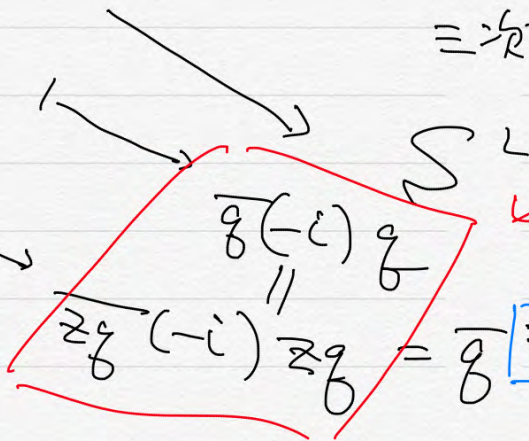 ≡次
S
\overline{q}(-i)q
||
\overline{zq}(-i)zq = \overline{q}